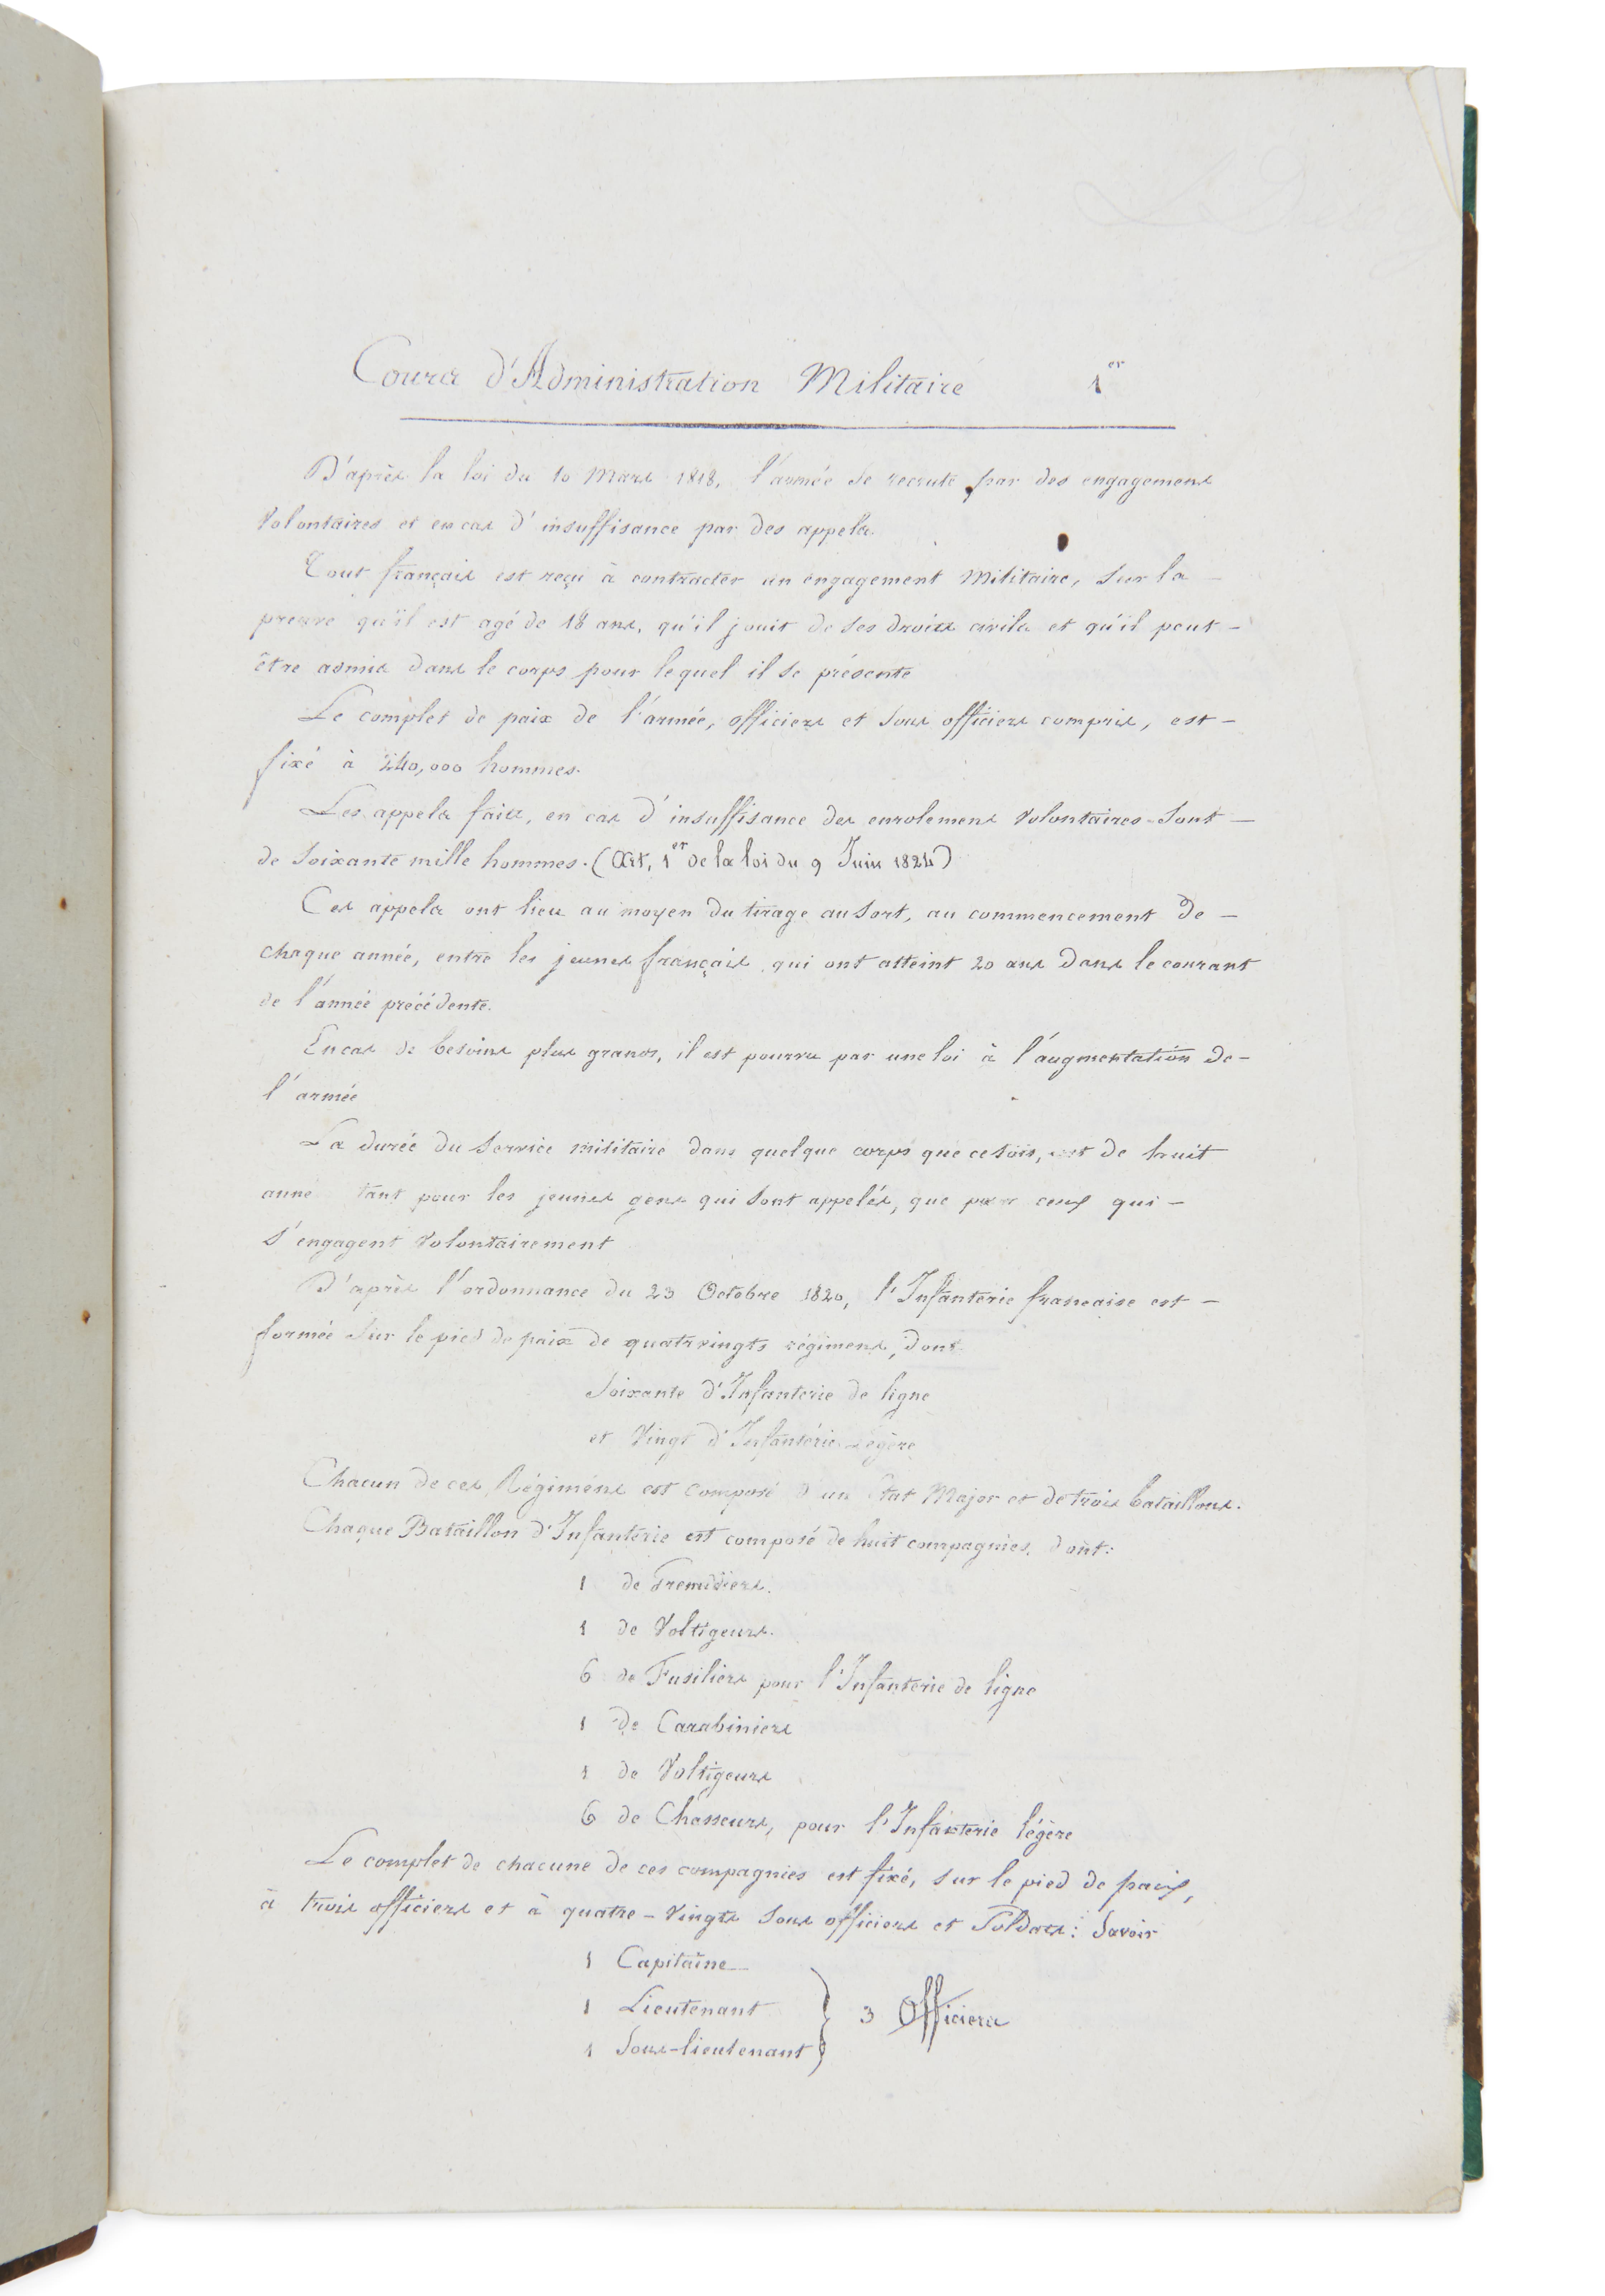 Cours d'Administration Militaire 1er
D'après la loi du 10 Mars 1818, l'armée se recrute par des engagemens
Volontaires et en cas d'insuffisance par des appels.
Tout français est reçu à contracter un engagement Militaire, sur la
preuve qu'il est agé de 18 ans, qu'il jouit de ses droits civils et qu'il peut
être admis dans le corps pour lequel il se présente
Le complet de paix de l'armée, officiers et sous officiers compris, est
fixé à 240,000 hommes.
Les appels faits, en cas d'insuffisance des enrolemens Volontaires sont
de soixante mille hommes. (Art. 1er de la loi du 9 Juin 1824)
Ces appels ont lieu au moyen du tirage au sort, au commencement de
chaque année, entre les jeunes français qui ont atteint 20 ans dans le courant
de l'année précédente.
En cas de besoins plus grands, il est pourvu par une loi à l'augmentation de
l'armée
La durée du Service militaire dans quelque corps que ce soit, est de huit
anné tant pour les jeunes gens qui sont appelés, que pour ceux qui
s'engagent Volontairement
D'après l'ordonnance du 23 Octobre 1820, l'Infanterie francaise est
formée sur le pied de paix de quatrevingts régimens, dont
Soixante d'Infanterie de ligne
et Vingt d'Infanterie Légère
Chacun de ces Régimens est composé d'un Etat Major et de trois bataillons.
Chaque Bataillon d'Infanterie est composé de huit compagnies, dont:
1 de Grenadiers.
1 de Voltigeurs.
6 de Fusiliers pour l'Infanterie de ligne
1 de Carabiniers
1 de Voltigeurs
6 de Chasseurs, pour l'Infanterie légère
Le complet de chacune de ces compagnies est fixé, sur le pied de paix,
à trois officiers et à quatre-Vingts sous officiers et Soldats: Savoir
1 Capitaine
1 Lieutenant } 3 Officiers
1 Sous-lieutenant